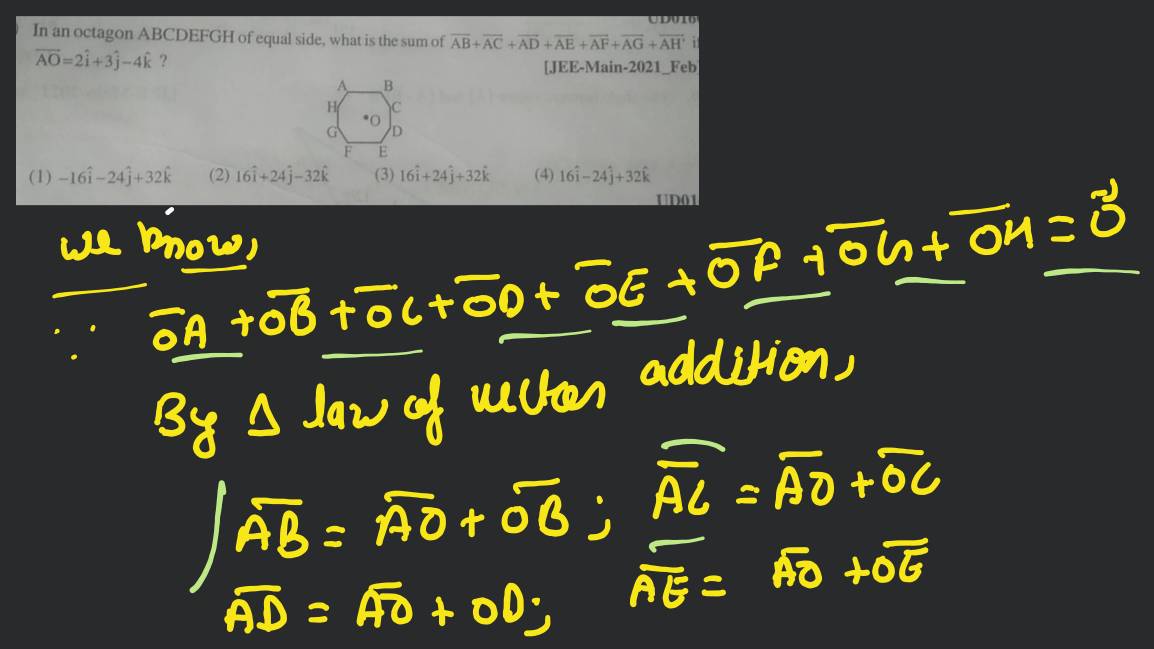 UD016
In an octagon ABCDEFGH of equal side, what is the sum of \overline{AB}+\overline{AC}+\overline{AD}+\overline{AE}+\overline{AF}+\overline{AG}+\overline{AH}, if
\overline{AO}=2î+3ĵ−4k̂ ?
[JEE-Main-2021_Feb
A B
H C
O
G D
F E
(1) −16î−24ĵ+32k̂ (2) 16î+24ĵ−32k̂ (3) 16î+24ĵ+32k̂ (4) 16î−24ĵ+32k̂
UD01
we know,
∵ \overline{OA}+\overline{OB}+\overline{OC}+\overline{OD}+\overline{OE}+\overline{OF}+\overline{OG}+\overline{OH}=\vec{0}
By Δ law of vector addition,
\overline{AB}=\overline{AO}+\overline{OB}; \overline{AC}=\overline{AO}+\overline{OC}
\overline{AD}=\overline{AO}+OD; \overline{AE}=\overline{AO}+\overline{OE}